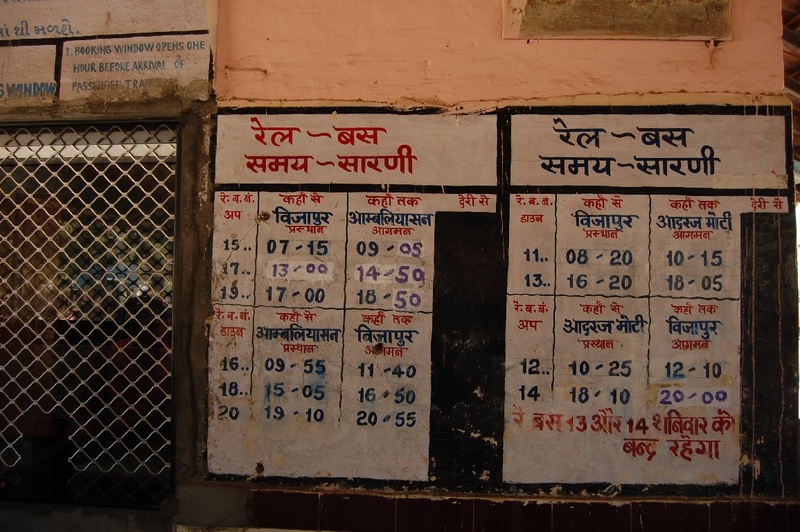 માં થી મળશે.
1. BOOKING WINDOW OPENS ONE
HOUR BEFORE ARRIVAL OF
PASSENGER TRAIN
WINDOW
रेल ~ बस
समय - सारणी
रे. ब. बं. कहाँ से कहाँ तक देरी से
अप विजापुर आम्बलियासन
प्रस्थान आगमन
15.. 07-15 09-05
17.. 13-00 14-50
19.. 17-00 18-50
रे. ब. बं. कहाँ से कहाँ तक
डाउन आम्बलियासन विजापुर
प्रस्थान आगमन
16.. 09-55 11-40
18... 15-05 16-50
20 19-10 20-55
रेल ~ बस
समय - सारणी
रे. ब. बं. कहाँ से कहाँ तक देरी से
डाउन विजापुर आदरज मोटी
प्रस्थान आगमन
11.. 08-20 10-15
13.. 16-20 18-05
रे. ब. बं. कहाँ से कहाँ तक
अप आदरज मोटी विजापुर
प्रस्थान आगमन
12.. 10-25 12-10
14 18-10 20-00
रे. बस 13 और 14 शनिवार को
बन्द रहेगा